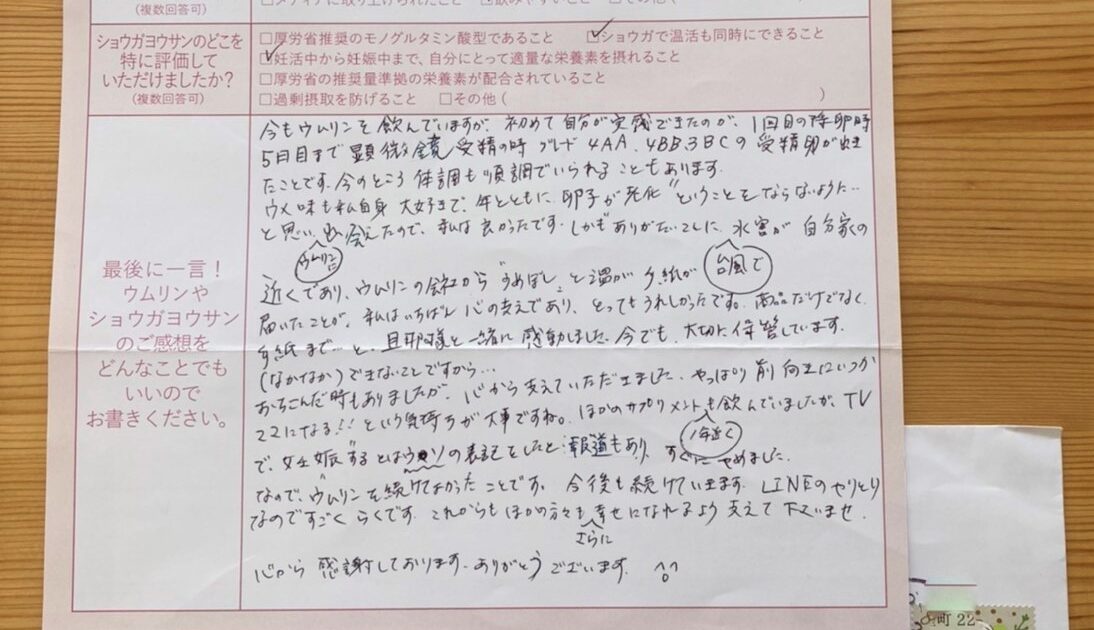 (複数回答可)
□メディアに取り上げられたこと □飲みやすいこと □その他(
ショウガヨウサンのどこを
特に評価して
いただけましたか?
(複数回答可)
□厚労省推奨のモノグルタミン酸型であること ☑ショウガで温活も同時にできること
☑妊活中から妊娠中まで、自分にとって適量な栄養素を摂れること
□厚労省の推奨量準拠の栄養素が配合されていること
□過剰摂取を防げること □その他( )
最後に一言!
ウムリンや
ショウガヨウサン
のご感想を
どんなことでも
いいので
お書きください。
今もウムリンを飲んでいますが、初めて自分が実感できたのが、1回目の採卵時
5日目まで顕微鏡受精の時グレード4AA、4BB、3BCの受精卵が出き
たことです。今のところ体調も順調でいられることもあります。
ウメ味も私自身大好きで、年とともに卵子が老化”ということをならないように…
と思い、出会えたので、私は良かったです。しかもありがたいことに、水害が自分家の
ウムリンに
台風で
近くであり、ウムリンの会社から「うめぼし」と温かい手紙が
届いたことが、私はいちばん心の支えであり、とってもうれしかったです。商品だけでなく
手紙まで…と、旦那様と一緒に感動しました。今でも、大切に保管しています。
(なかなか)できないことですから…
おちこんだ時もありましたが、心から支えていただきました。やっぱり前向きにいつか
ママになる!!という気持ちが大事ですね。ほかのサプリメントも飲んでいましたが、TV
1年近く
で、妊娠”するとはウソの表記をしたと報道もあり、すぐにやめました。
なので、ウムリンを続けてよかったことです。今後も続けていきます。LINEのやりとり
なのですごくらくです。これからもほかの方々も幸せになれるよう支えて下さいませ。
さらに
心から感謝しております。ありがとうございます。^o^
町 22-